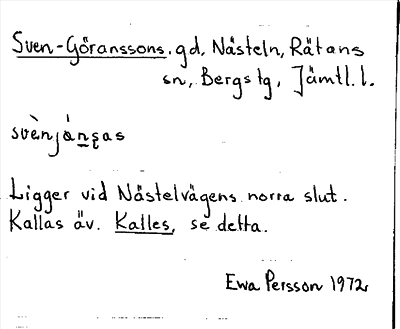 Sven-Göranssons. gd, Nästeln, Rätans
sn, Bergs tg, Jämtl. l.
svènjánşas
Ligger vid Nästelvägens norra slut.
Kallas äv. Kalles, se detta.
Ewa Persson 1972